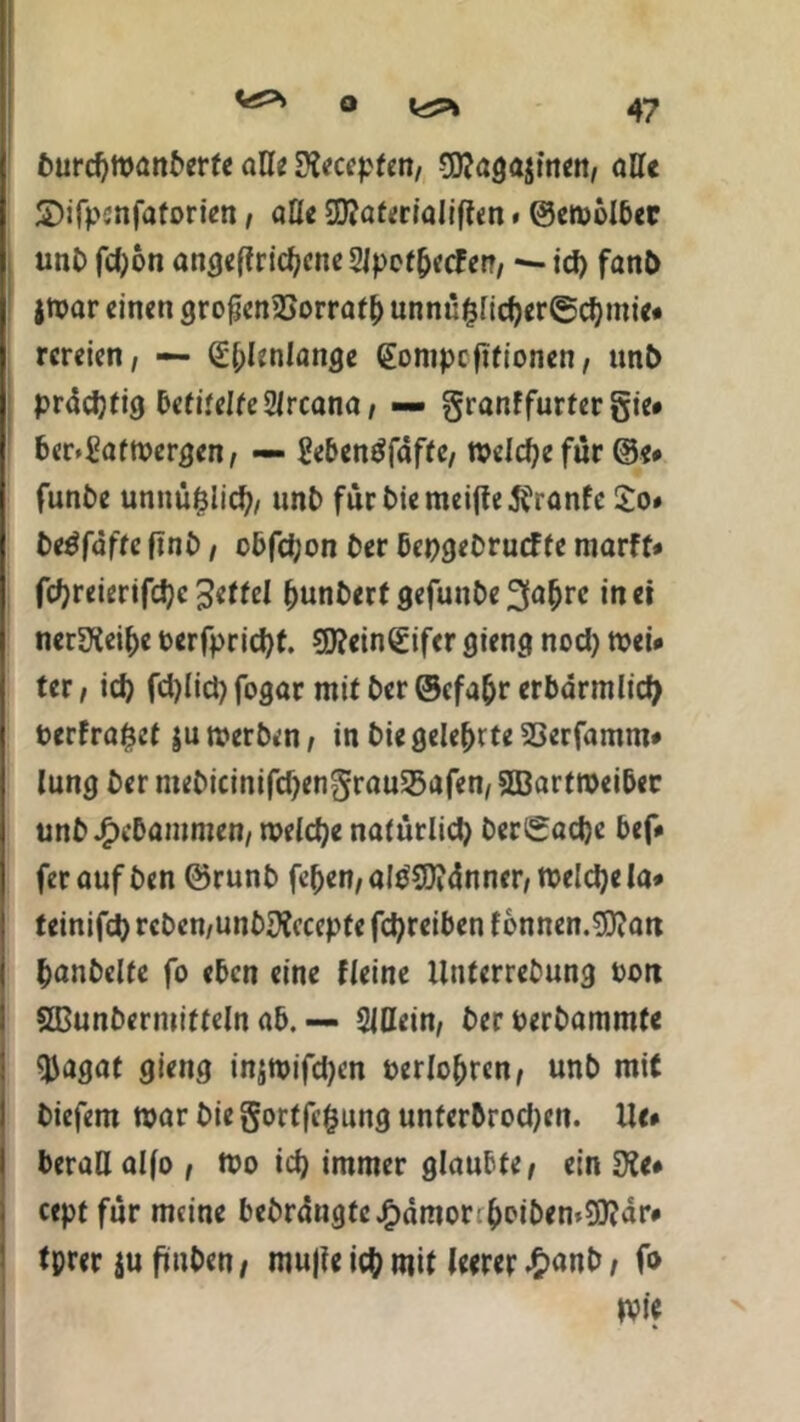 o 47
durchwanderte alle Recepten, Magazinen, alle
Dispensatorien, alle Materialisten-Gewölber
und schön angestrichene Apothecken, — ich fand
zwar einen großen Vorrath unnützlicher Schmie-
rereien, — Ehlenlange Compositionen, und
prächtig betitelte Arcana, — Frankfurter Fie-
ber-Lattwergen, — Lebenssäfte, welche für Ge-
sunde unnützlich, und für die meiste Kranke To-
dessäfte sind, obschon der beygedruckte markt-
schreierische Zettel hundert gesunde Jahre in ei
ner Reihe verspricht. Mein Eifer gieng noch wei-
ter, ich schlich sogar mit der Gefahr erbärmlich
verkratzet zu werden, in die gelehrte Versamm-
lung der medicinischen Frau Basen, Wartweiber
und Hebammen, welche natürlich der Sache bes-
ser auf den Grund sehen, als Männer, welche la-
teinisch reden, und Recepte schreiben können. Man
handelte so eben eine kleine Unterredung von
Wundermitteln ab. — Allein, der verdammte
Pagat gieng inzwischen verlohren, und mit
diesem war die Fortsetzung unterbrochen. Ue-
berall also, wo ich immer glaubte, ein Re-
cept für meine bedrängte Hämorrhoiden-Mär-
tyrer zu finden, mußte ich mit leerer Hand, so
wie